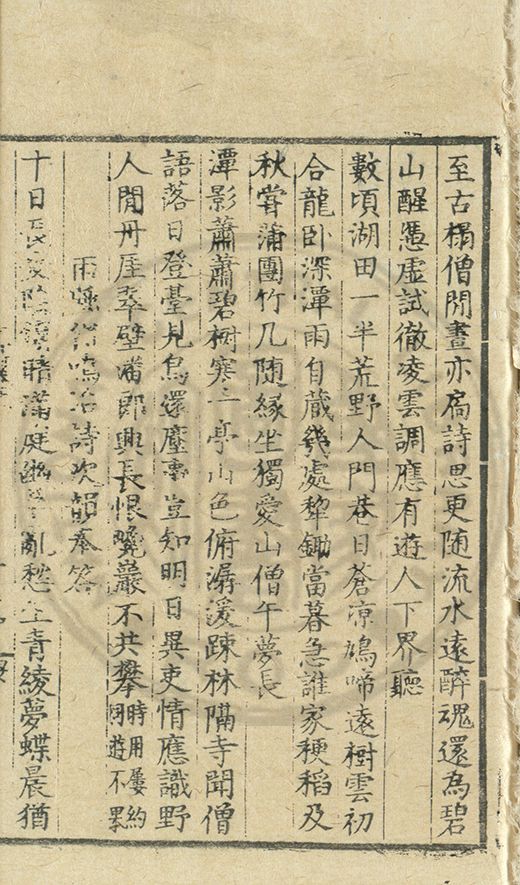 至古榻僧閒晝亦扃詩思更隨流水遠醉魂還為碧
山醒憑虛試徹凌雲調應有遊人下界聽
數頃湖田一半荒野人門巷日蒼凉鳩啼遠樹雲初
合龍卧深潭雨自蔵幾處犂鋤當暮急誰家稉稻及
秋甞蒲團竹几随緣坐獨愛山僧午夢長
潭影蕭蕭碧樹寒亭山色俯潺湲踈林隔寺聞僧
語落日登臺見鳥還塵事豈知明日異吏情應識野
人閒丹厓翠壁滿即興長恨巖不共攀時用屢約同遊不果
雨詩次韻奉答
十日暗滿庭亂愁生青綾夢蝶晨猶